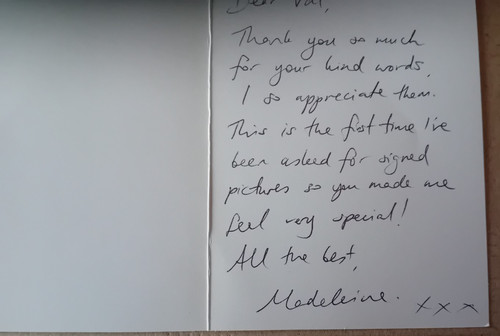 Dear Val,
Thank you so much
for your kind words,
I so appreciate them.
This is the first time I've
been asked for signed
pictures so you made me
feel very special!
All the best,
Madeleine. xxx